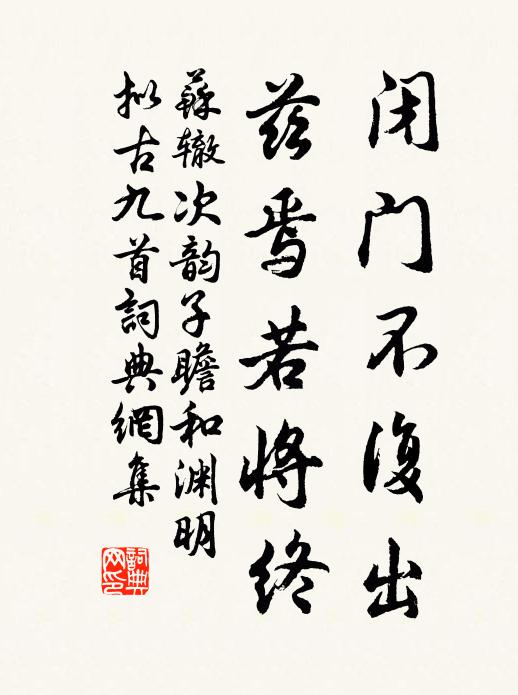 闭门不復出
兹焉若将终
蘇辙次韵子瞻和渊明
拟古九首詞典網集
詞典网印